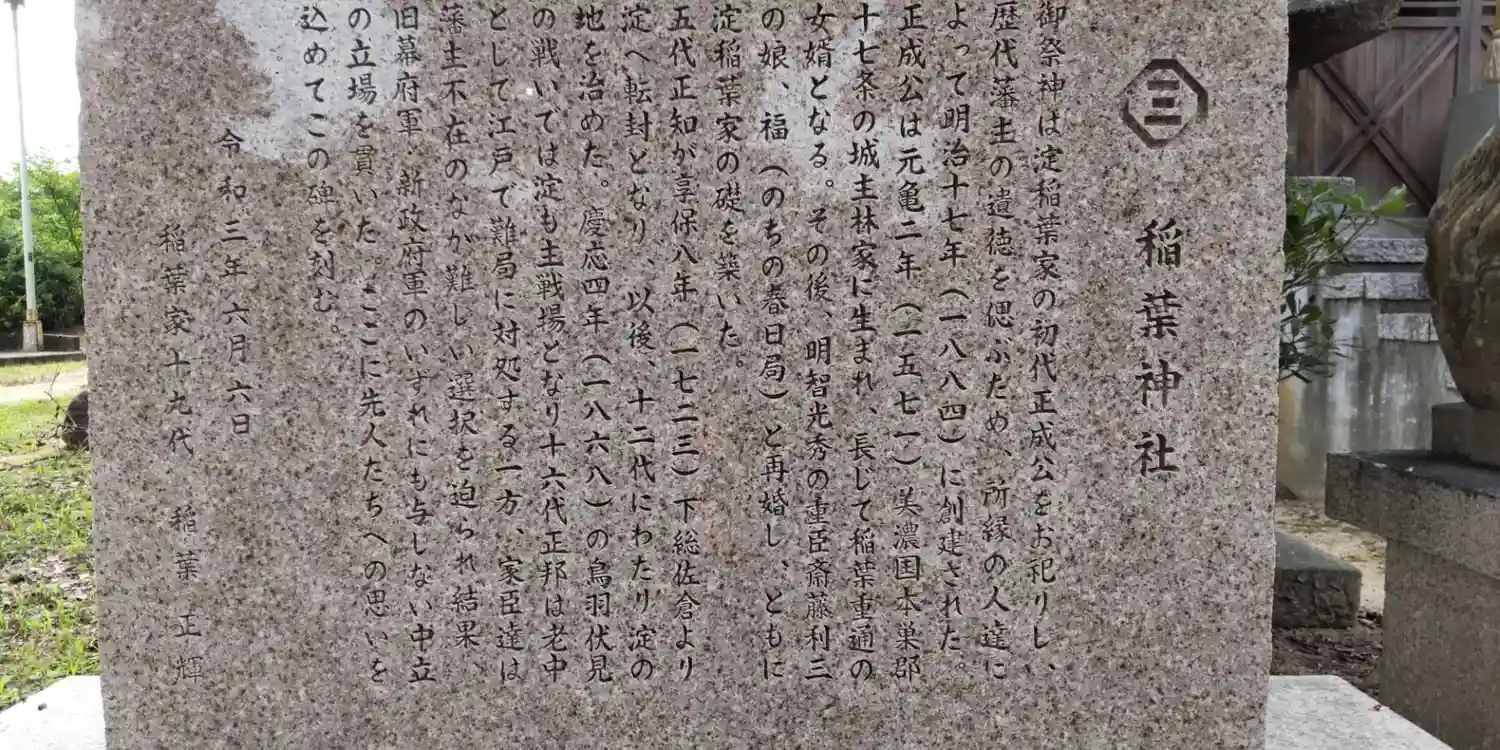 稲葉神社
御祭神は淀稲葉家の初代正成公をお祀りし、
歴代藩主の遺徳を偲ぶため、所縁の人達に
よって明治十七年(一八八四)に創建された。
正成公は元亀二年(一五七一)美濃国本巣郡
十七条の城主林家に生まれ、長じて稲葉重通の
女婿となる。その後、明智光秀の重臣斎藤利三
の娘、福(のちの春日局)と再婚し、ともに
淀稲葉家の礎を築いた。
五代正知が享保八年(一七二三)下総佐倉より
淀へ転封となり、以後、十二代にわたり淀の
地を治めた。慶応四年(一八六八)の鳥羽伏見
の戦いでは淀も主戦場となり十六代正邦は老中
として江戸で難局に対処する一方、家臣達は
藩主不在のなか難しい選択を迫られ結果、
旧幕府軍・新政府軍のいずれにも与しない中立
の立場を貫いた。ここに先人たちへの思いを
込めてこの碑を刻む。
令和三年六月六日
稲葉家十九代 稲葉正輝